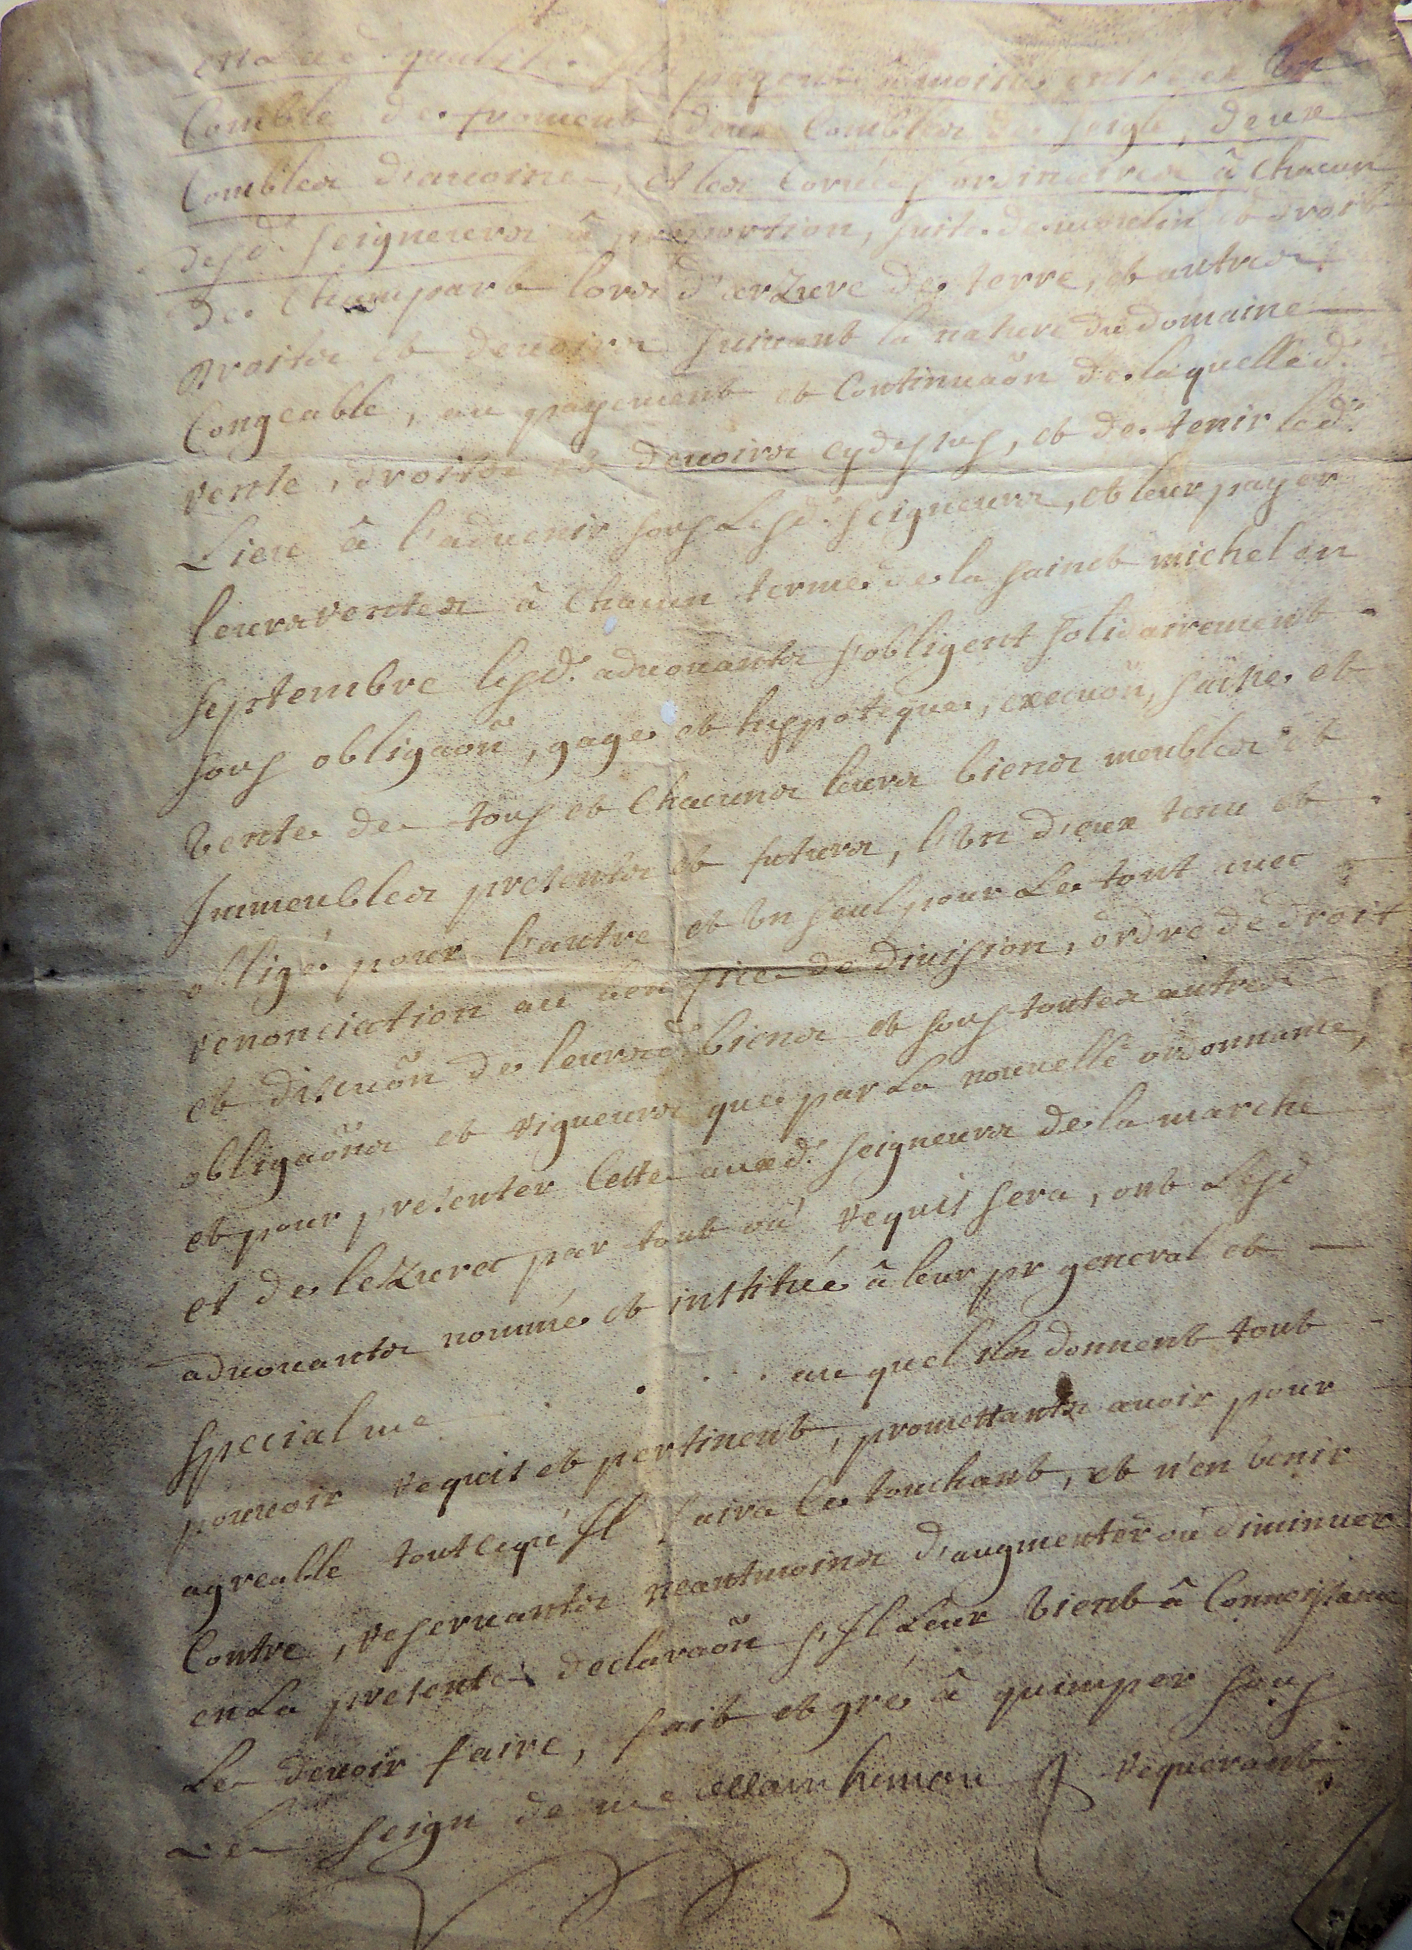 qualité Ils payent à moitié entr'eux Un
Comble de froment, deux Combles de seigle, deux
Combles d'avoine, et les Corvées ordinaires â Chacun
desd. seigneurs â proportion, suitte de moulin et droit
de Champart lors d'arZure de terre, et autres
Droits et devoirs suivant la nature du domaine
Congeable, au payement et Continuaõn de laquelle d.
rente, droits et devoirs cydessus, et de tenir led.
Lieu â l'advenir sous Lesd. seigneurs, et leur payer
leurs rentes â Chacun terme de la sainct michel en
septembre lesd. advouants s'obligent solidairement
sous obligaõn, gage et hyppoteque, execuõn, saisie et
Vente de tous et Chacuns leurs biens meubles et
Immeubles presents et futurs, l'Un d'eux tenu et
obligé pour l'autre et Un seul pour Le tout avec
renonciation au benefice de division, ordre de droit
et discuõn de leursd. biens et sous toutes autres
obligaõns et rigueurs que par La nouvelle ordonnance,
et pour presenter Cette auxd. seigneurs de la marche
et de leZurec par tout où requis sera, ont Lesd
advouants nommé et institué â leur pr general et
special me . . . . au quel Ils donnent tout
pouvoir requis et pertinent, promettants avoir pour
agreable tout ce qu'Il faira Ce touchant, et n'en Venir
Contre, reservants neantmoins d'augmenter ou diminuer
en La presente declaraõn s'Il Leur Vient â Connoissance
Le devoir faire, fait et gré â quimper sous
Le seign de me allain himon requerant